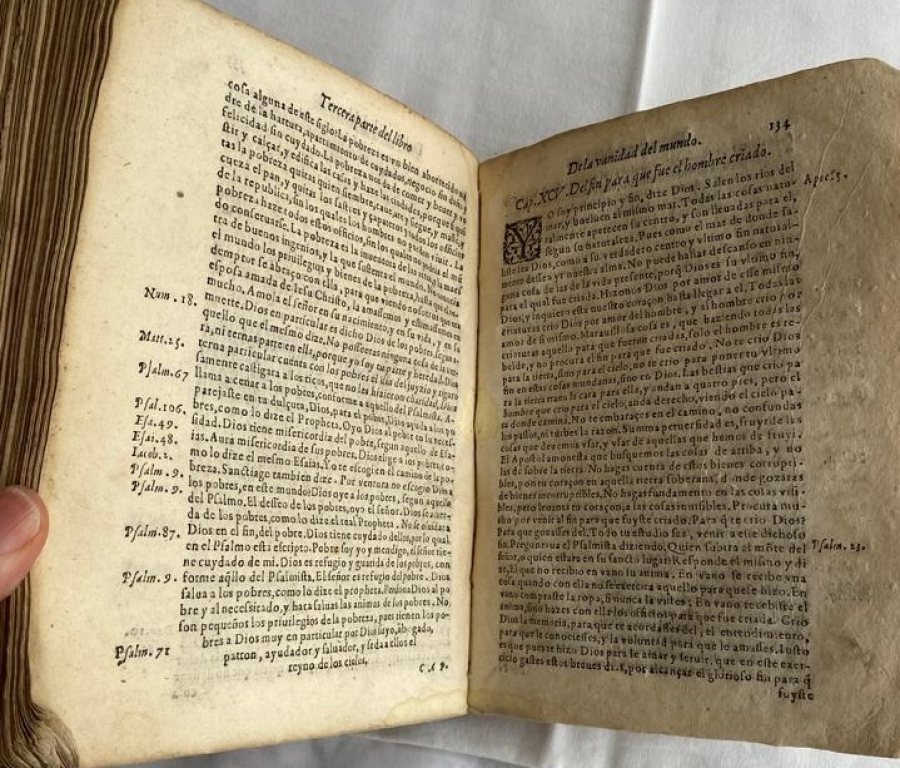 Tercera parte del libro
cosa alguna de este siglo. La pobreza es vn bien aborrecido,
dre de la hartura, apartamiento de cuydados, negocio sin daño, y
felicidad sin cuydado. La pobreza nos da de comer y beuer, y ve
stir y calçar, y edifica las casas y haze las ciudades, porque si qui
tas la pobreza, quitas quien siembre, caue, are y siegue, y mate, y
cueza el pan, y quitas los sastres y çapateros y todos los officios
de la republica, sin los quales los hombres no pueden viuir. La
pobreza haze todos estos officios, sin los quales no podria el mū
do conseruarse. La pobreza es la inuentora de las artes, y la maes
tra de buenos ingenios, y la que sustenta el mundo. No conocia
el mundo los priuilegios y bienes de la pobreza, hasta que el re
demptor se abraço con ella, para que viendo nosotros que era
esposa amada de Iesu Christo, la amassemos y estimassemos en
mucho. Amola el señor en su nacimiento, y en su vida, y en su
muerte. Dios en particular es dicho Dios de los pobres, segun a-
Num. 18.
quello que el mesmo dize. No posseeras ninguna cosa de la tier
ra, ni ternas parte en ella, porque yo soy tu parte y heredad. Dios
Matt. 25.
terna particular cuenta con los pobres el dia del juyzio y rigurо
samente castigara a los ricos, que no les hizieron charidad. Dios
Psalm. 67
llama a cenar a los pobres, conforme a aquello del Psalmista. A-
parejaste en tu dulçura, Dios, para el pobre. Dios ayuda a los po-
Psal. 106.
bres, como lo dize el Propheta. Oyo Dios al pobre en su neces-
Esa. 49.
sidad. Dios tiene misericordia del pobre, segun aquello de Esa-
Esai. 48.
ias. Aura misericordia de sus pobres. Dios elige a los pobres, co-
Iacob. 2.
mo lo dize el mesmo Esaias. Yo te escogi en el camino de la po-
Psalm. 9.
breza. Sanctiago tambien dize. Por ventura no escogio Dios a
Psalm. 9.
los pobres, en este mundo? Dios oye a los pobres, segun aquello
del Psalmo. El desseo de los pobres, oyo el señor. Dios se acuer-
da de los pobres, como lo dize el real Propheta. No se oluidara
Psalm. 87.
Dios en el fin, del pobre. Dios tiene cuydado dellos, por lo qual
en el Psalmo esta escripto. Pobre soy yo y mendigo, el señor tie-
ne cuydado de mi. Dios es refugio y guarida de los pobres, con
Psalm. 9.
forme aq̃llo del Psalmista. El señor es refugio del pobre. Dios
salua a los pobres, como lo dize el propheta. Perdona Dios al po
bre y al necessitado, y hara saluas las animas de los pobres. No
son pequeños los priuilegios de la pobreza, pues tienen los po-
Psalm. 71
bres a Dios muy en particular por Dios suyo, abogado,
patron, ayudador y saluador, y se da a ellos el
reyno de los cielos.
CAP.
De la vanidad del mundo.
134
Cap. XCV. Del fin para que fue el hombre criado.
YO soy principio y fin, dize Dios. Salen los rios del
Apoc. 5.
mar, y bueluen al mismo mar. Todas las cosas natu-
ralmente apetecen su centro, y son lleuadas para el,
segun su naturaleza. Pues como el mar de donde sa-
liste sea Dios, como a su verdadero centro y vltimo fin natural-
mente dessea yr nuestra alma. No puede hallar descanso en nin-
guna cosa de las de la vida presente, porq̃ Dios es su vltimo fin,
para el qual fue criada. Hizonos Dios por amor de esse mismo
Dios, y inquieto esta nuestro coraçon hasta llegar a el. Todas las
criaturas crio Dios por amor del hombre, y al hombre crio por
amor de si mismo. Marauillosa cosa es, que haziendo todas las
criaturas aquello para que fueron criadas, solo el hombre es re-
belde, y no procura el fin para que fue criado. No te crio Dios
para la tierra, sino para el cielo, no te crio para poner tu vltimo
fin en estas cosas mundanas, sino en Dios. Las bestias que crio pa
ra la tierra traen la cara para ella, y andan a quatro pies, pero el
hombre que crio para el cielo, anda derecho, viendo el cielo pa-
ra donde camina. No te embaraces en el camino, no confundas
los passos, ni turbes la razon. Summa peruersidad es, fruyr de las
cosas que deuemos vsar, y vsar de aquellas que hemos de fruyr.
El Apostol amonesta que busquemos las cosas de arriba, y no
las de sobre la tierra. No hagas cuenta de estos bienes corrupti-
bles, pon tu coraçon en aquella tierra soberana, donde gozaras
de bienes incorruptibles. No hagas fundamento en las cosas visi-
bles, pero leuanta tu coraçon, a las cosas inuisibles. Procura mu-
cho por venir al fin para que fuyste criado. Para q̃ te crio Dios?
Para que gozasses del. Todo tu estudio sea, venir a este dichoso
Psalm. 23.
fin. Pregunto al Psalmista diziendo. Quien subira al mōte del
señor, o quien estara en su sancto lugar? Responde el mismo y di
ze, El que no recibio en vano su anima. En vano se recibe vna
cosa quando con ella no se exercita aquello para que se hizo. En
vano compraste la ropa, si nunca la vistes; En vano recebiste el
anima, sino hazes con ella los officios para que fue criada. Crio
Dios la memoria, para que te acordasses del, el entendimiento,
para que le conociesses, y la voluntad para que le amasses. Iusto
es que pues te hizo Dios para le amar y seruir, que en este exer-
cicio gastes estos breues dias, por alcançar el glorioso fin para q̃
fuyste